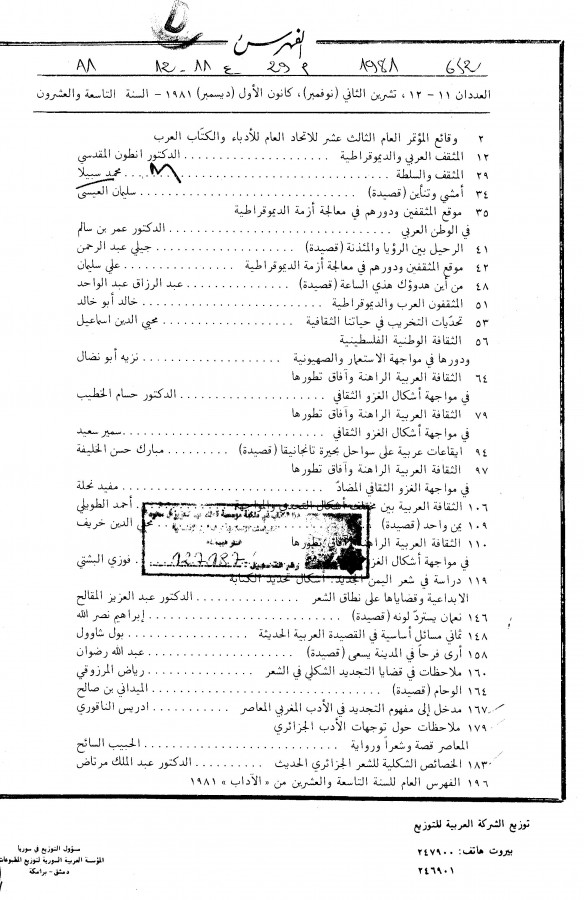 الفهرس
٨٨ 12 - 11 ع 29 م 1981
العددان ١١ - ١٢ ، تشرين الثاني (نوفمبر)، كانون الأول (ديسمبر) ١٩٨١ - السنة التاسعة والعشرون
٢ وقائع المؤتمر العام الثالث عشر للاتحاد العام للأدباء والكتّاب العرب
١٢ المثقف العربي والديموقراطية . . . . . . . . . . الدكتور انطون المقدسي
٢٩ المثقف والسلطة . . . . . . . . . . محمد سبيلا
٣٤ أمشي وتنأين (قصيدة) . . . . . . . . . . سليمان العيسى
٣٥ موقع المثقفين ودورهم في معالجة أزمة الديموقراطية
في الوطن العربي . . . . . . . . . . الدكتور عمر بن سالم
٤١ الرحيل بين الرؤيا والمئذنة (قصيدة) . . . . . . . . . . جيلي عبد الرحمن
٤٢ موقع المثقفين ودورهم في معالجة أزمة الديموقراطية . . . . . . . . . . علي سليمان
٤٨ من أين هدوؤك هذي الساعة (قصيدة) . . . . . . . . . . عبد الرزاق عبد الواحد
٥١ المثقفون العرب والديموقراطية . . . . . . . . . . خالد أبو خالد
٥٣ تحدّيات التخريب في حياتنا الثقافية . . . . . . . . . . محيي الدين اسماعيل
٥٦ الثقافة الوطنية الفلسطينية
ودورها في مواجهة الاستعمار والصهيونية . . . . . . . . . . نزيه أبو نضال
٦٤ الثقافة العربية الراهنة وآفاق تطورها
في مواجهة أشكال الغزو الثقافي . . . . . . . . . . الدكتور حسام الخطيب
٧٩ الثقافة العربية الراهنة وآفاق تطورها
في مواجهة أشكال الغزو الثقافي . . . . . . . . . . سمير سعيد
٩٤ ايقاعات عربية على سواحل بحيرة تانجانيقا (قصيدة) . . . . مبارك حسن الخليفة
٩٧ الثقافة العربية الراهنة وآفاق تطورها
في مواجهة الغزو الثقافي المضادّ . . . . . . . . . . مفيد نحلة
١٠٦ الثقافة العربية بين مختلف أشكال التحدي والمواجهة أحمد الطويلي
١٠٩ بمن واحد (قصيدة) محيي الدين خريف
١١٠ الثقافة العربية الراهنة وآفاق تطورها
في مواجهة أشكال الغزو . . فوزي البشتي
127187
١١٩ دراسة في شعر اليمن الجديد: أشكال تحديد الكتابة
الابداعية وقضاياها على نطاق الشعر . . . . . . . . . . الدكتور عبد العزيز المقالح
١٤٦ نعمان يستردّ لونه (قصيدة) . . . . . . . . . . إبراهيم نصر الله
١٤٨ ثماني مسائل أساسية في القصيدة العربية الحديثة . . . . . . . . . . بول شاوول
١٥٨ أرى فرحاً في المدينة يسعى (قصيدة) . . . . . . . . . . عبد الله رضوان
١٦٠ ملاحظات في قضايا التجديد الشكلي في الشعر . . . . . . . . . . رياض المرزوقي
١٦٤ الوحام (قصيدة) . . . . . . . . . . الميداني بن صالح
١٦٧ مدخل إلى مفهوم التجديد في الأدب المغربي المعاصر . . . . . . . . . . ادريس الناقوري
١٧٩ ملاحظات حول توجهات الأدب الجزائري
المعاصر قصة وشعراً ورواية . . . . . . . . . . الحبيب السائح
١٨٣ الخصائص الشكلية للشعر الجزائري الحديث . . . . . . . . . . الدكتور عبد الملك مرتاض
١٩٦ الفهرس العام للسنة التاسعة والعشرين من «الآداب» ١٩٨١
توزيع الشركة العربية للتوزيع
بيروت هاتف: ٢٤٧٩٠٠
٢٤٦٩٠١
مسؤول التوزيع في سوريا
المؤسسة العربية السورية لتوزيع المطبوعات
دمشق - برامكة